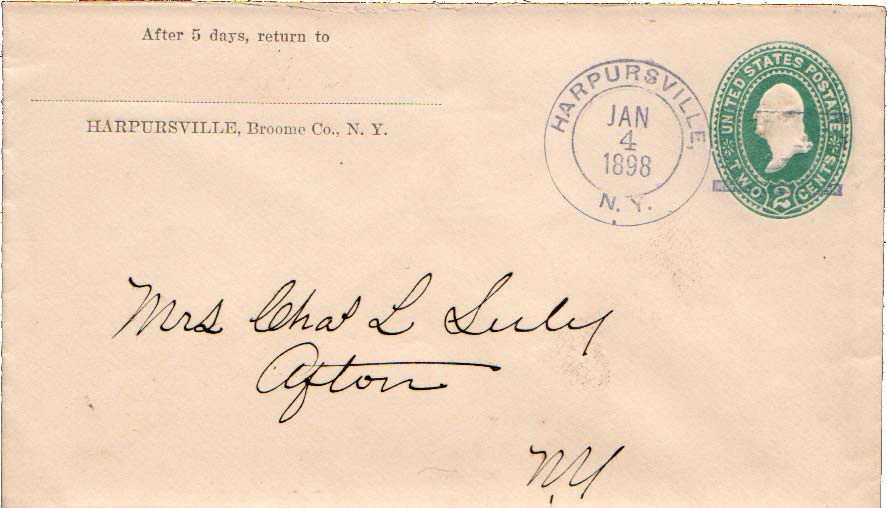 After 5 days, return to
HARPURSVILLE, Broome Co., N. Y.
HARPURSVILLE,
JAN
4
1898
N. Y.
UNITED STATES POSTAGE
TWO 2 CENTS
Mrs Chas L
Afton
NY